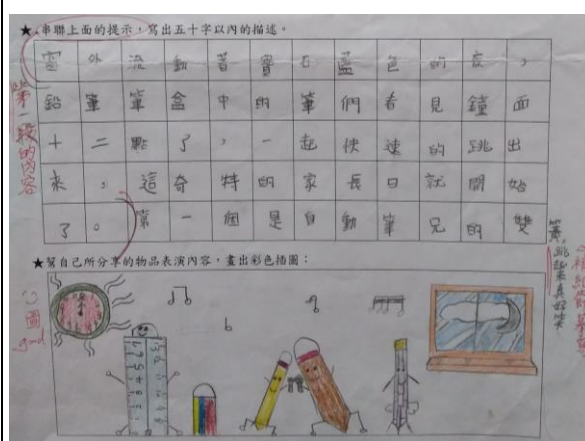 ★串聯上面的提示，寫出五十字以內的描述。
窗外流動著寶石藍色的夜，
鉛筆筆盒中的筆們看見鐘面
十二點了，一起快速的跳出
來，這奇特的家長日就開始
了。第一個是自動筆兄的雙
簧，跳起來真好笑
第一段的內容
★幫自己所分享的物品表演內容，畫出彩色插圖：
圖
good